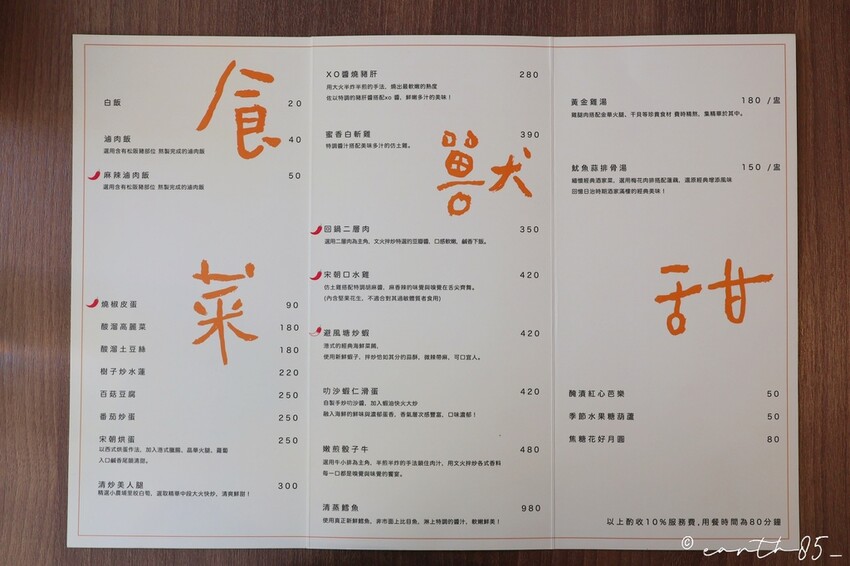 食
白飯 20
滷肉飯 40
選用含有松阪豬部位 熬製完成的滷肉飯
麻辣滷肉飯 50
選用含有松阪豬部位 熬製完成的滷肉飯
菜
燒椒皮蛋 90
酸溜高麗菜 180
酸溜土豆絲 180
樹子炒水蓮 220
百菇豆腐 250
番茄炒蛋 250
宋朝烘蛋 250
以西式烘蛋作法，加入港式臘腸、晶華火腿、蘿蔔
入口鹹香尾韻清甜。
清炒美人腿 300
精選小農埔里筊白筍，選取精華中段大火快炒，清爽鮮甜！
XO醬燒豬肝 280
用大火半炸半煎的手法，燒出最軟嫩的熟度
佐以特調的豬肝醬搭配xo 醬，鮮嫩多汁的美味！
蜜香白斬雞 390
特調醬汁搭配美味多汁的仿土雞。
獸
回鍋二層肉 350
選用二層肉為主角，文火拌炒特選的豆瓣醬，口感軟嫩，鹹香下飯。
宋朝口水雞 420
仿土雞搭配特調胡麻醬，麻香辣的味覺與嗅覺在舌尖齊舞。
(內含堅果花生，不適合對其過敏體質者食用)
避風塘炒蝦 420
港式的經典海鮮菜餚，
使用新鮮蝦子，拌炒恰如其分的蒜酥，微辣帶麻，可口宜人。
叻沙蝦仁滑蛋 420
自製手炒叻沙醬，加入蝦油快火大炒
融入海鮮的鮮味與濃郁蛋香，香氣層次感豐富，口味濃郁！
嫩煎骰子牛 480
選用牛小排為主角，半煎半炸的手法鎖住肉汁，用文火拌炒各式香料
每一口都是嗅覺與味覺的饗宴。
清蒸鱈魚 980
使用真正新鮮鱈魚，非市面上比目魚，淋上特調的醬汁，軟嫩鮮美！
黃金雞湯 180 /盅
雞腿肉搭配金華火腿、干貝等珍貴食材 費時精熬，集精華於其中。
魷魚蒜排骨湯 150 /盅
緬懷經典酒家菜，選用梅花肉排搭配蓮藕，還原經典增添風味
回憶日治時期酒家滿樓的經典美味！
甜
醃漬紅心芭樂 50
季節水果糖葫蘆 50
焦糖花好月圓 80
以上酌收10%服務費，用餐時間為80分鐘
© earth85_